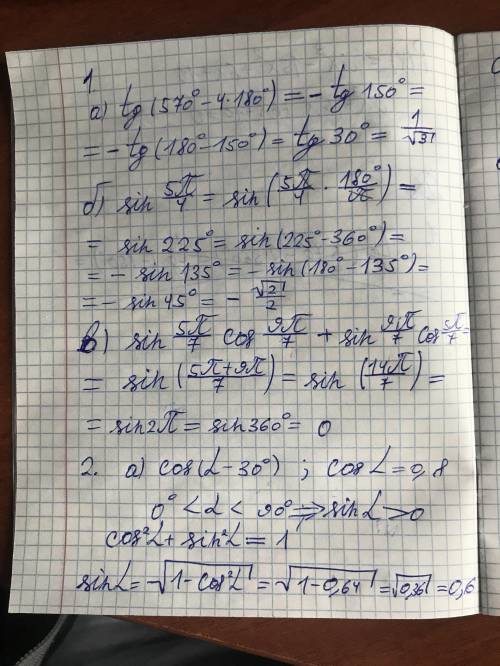 1.
а) tg (570° - 4·180°) = - tg 150° =
= - tg (180° - 150°) = tg 30° = 1/√3
б) sin 5π/4 = sin (5π/4 · 180°/π) =
= sin 225° = sin (225° - 360°) =
= - sin 135° = - sin (180° - 135°) =
= - sin 45° = - √2/2
в) sin 5π/7 cos 9π/7 + sin 9π/7 cos 5π/7 =
= sin ((5π+9π)/7) = sin (14π/7) =
= sin 2π = sin 360° = 0
2. а) cos (α - 30°) ; cos α = 0,8
0° < α < 90° ⇒ sin α > 0
cos²α + sin²α = 1
sin α = √(1 - cos²α) = √(1 - 0,64) = √0,36 = 0,6